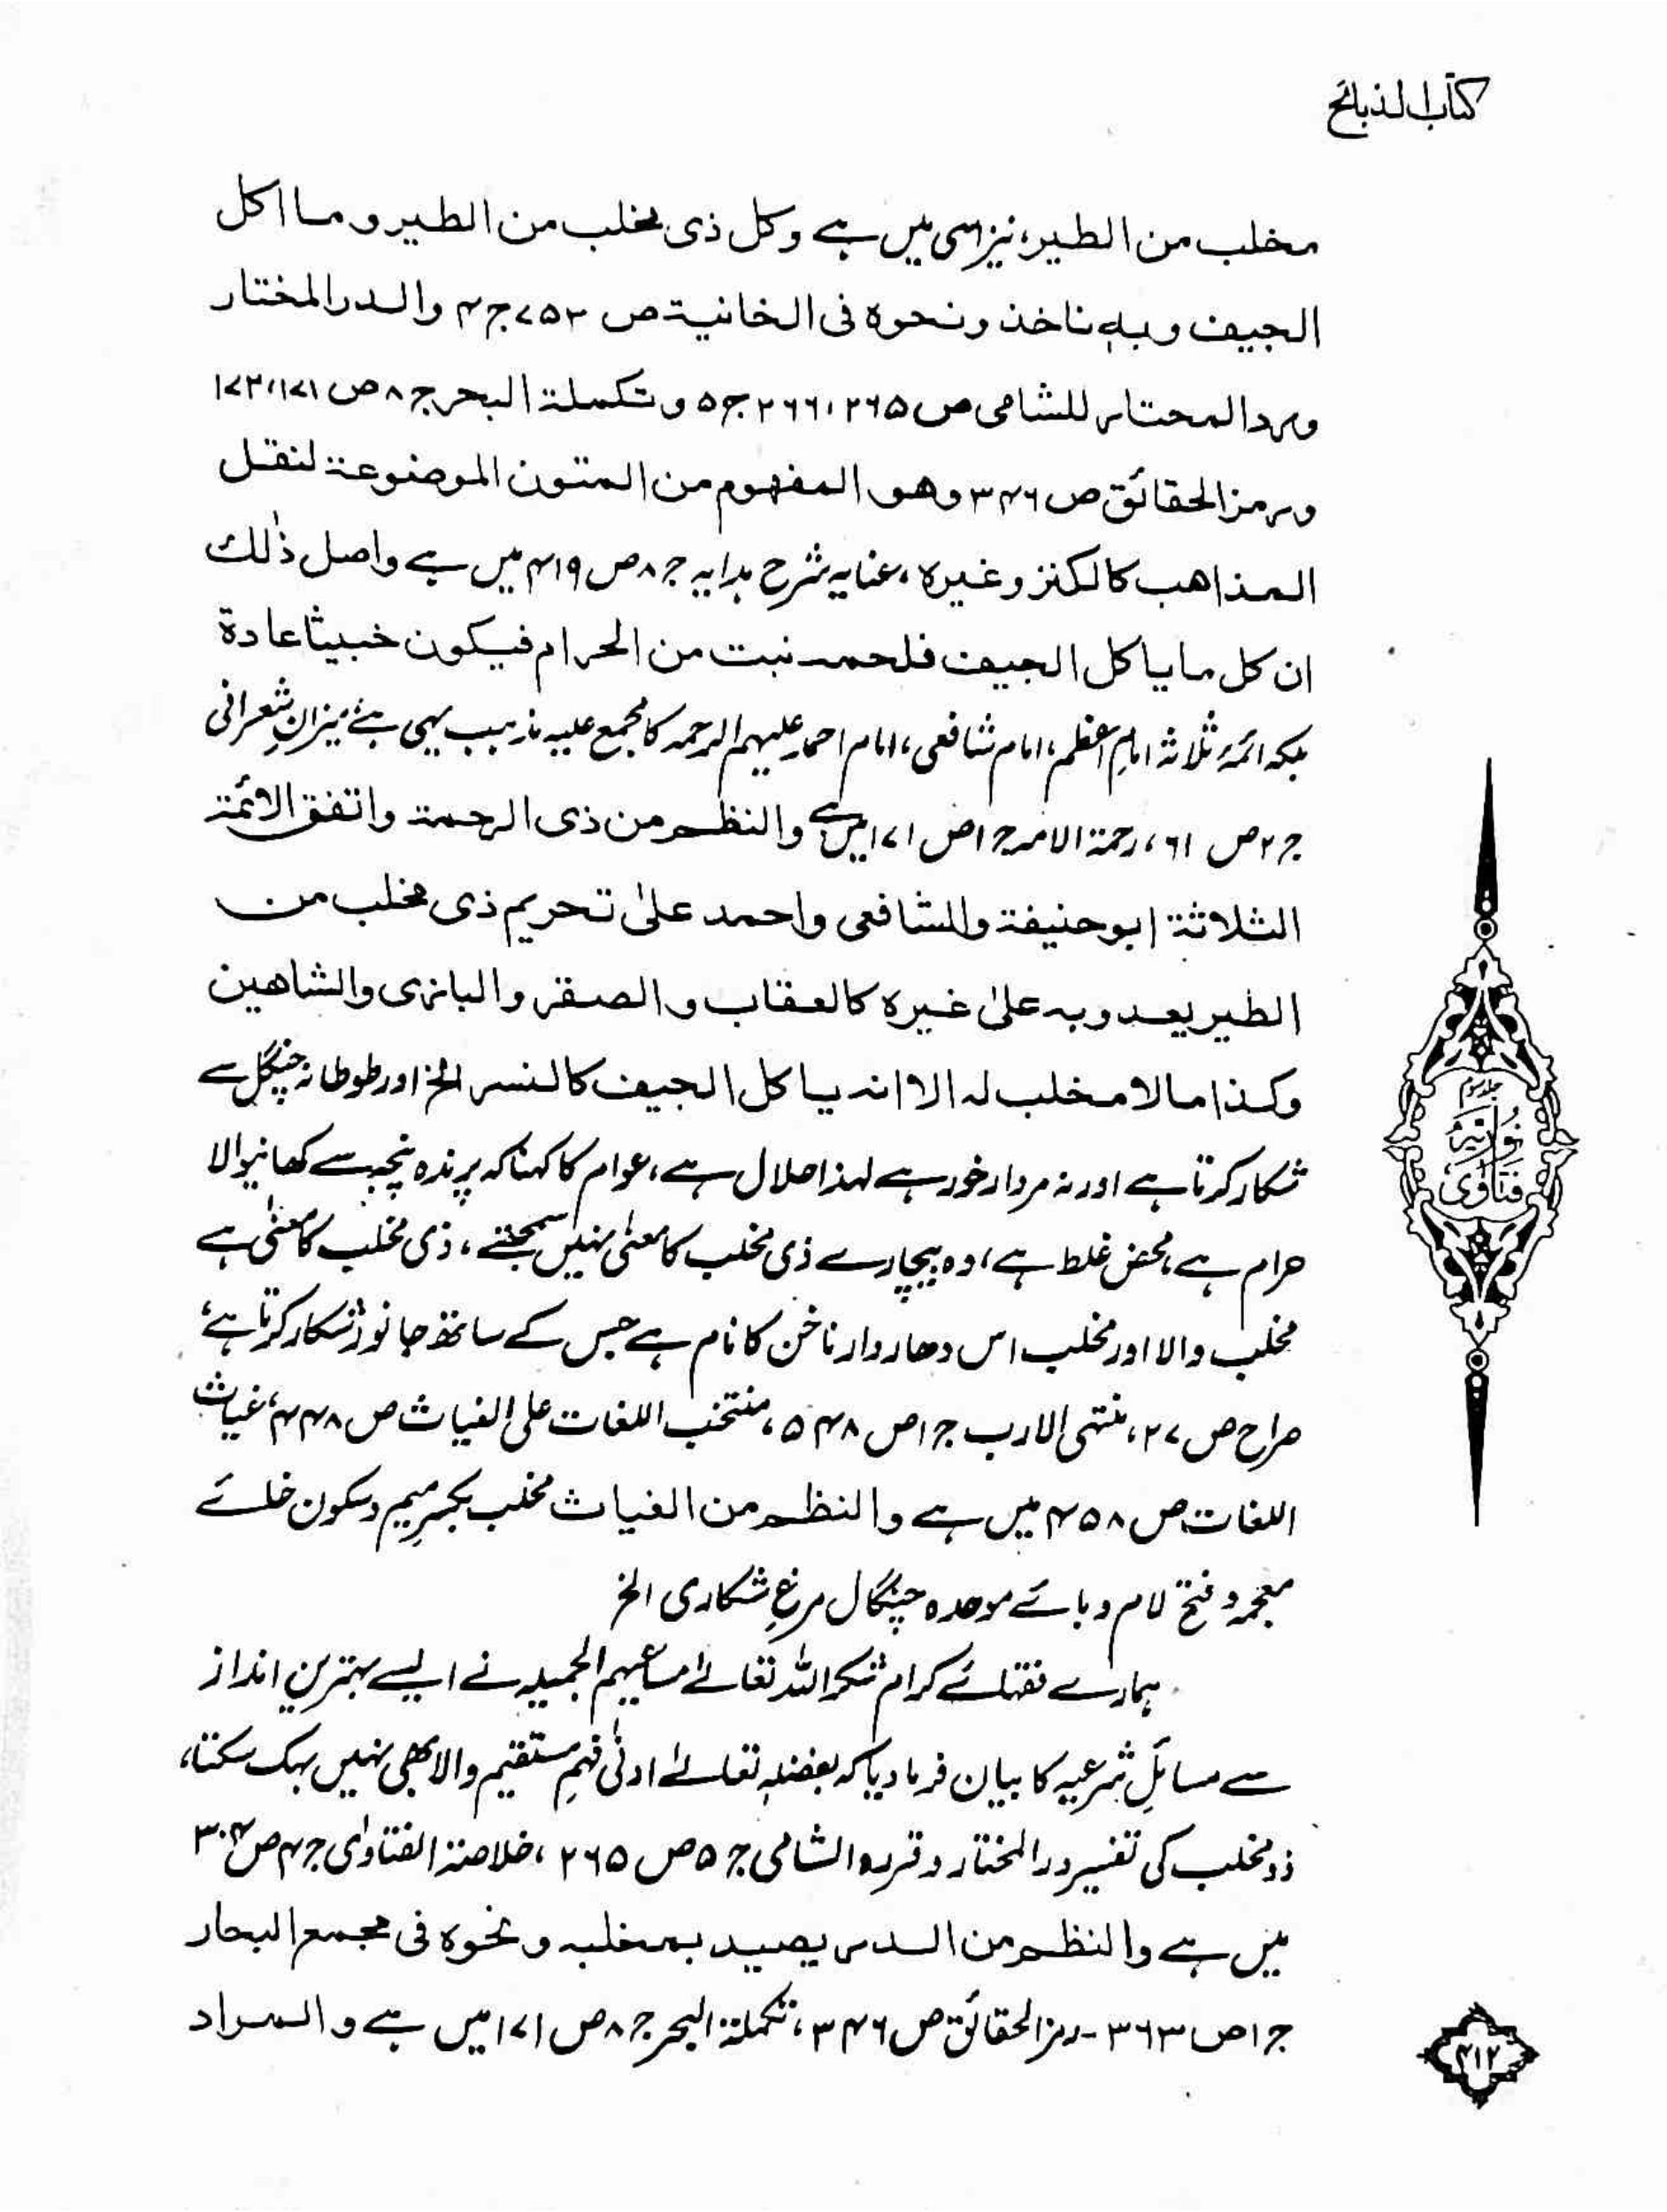 کتاب الذبائح
مخلب من الطیر، نیز اسی میں ہے وکل ذی مخلب من الطیر و ما اکل
الجیف و بہٖ ناخذ ونحوہ فی الخانیۃ ص ۷۵۳ ج ۴ والدر المختار
ورد المحتار للشامی ص ۲۶۵، ۲۶۶ ج ۵ و تکملۃ البحر ج ۸ ص ۱۷۱، ۱۷۲
ورمز الحقائق ص ۳۴۶ وھو المفھوم من المتون الموضوعۃ لنقل
المذاھب کالکنز وغیرہ، عنایہ شرح ہدایہ ج ۸ ص ۴۱۹ میں ہے واصل ذٰلك
ان کل ما یاکل الجیف فلحمہ نبت من الحرام فیکون خبیثا عادۃ
بلکہ ائمۂ ثلاثہ امامِ اعظم، امام شافعی، امام احمد علیہم الرحمہ کا مجمع علیہ مذہب یہی ہے، میزانِ شعرانی
ج ۲ ص ۶۱، رحمۃ الامہ ج ۱ ص ۱۷۱ میں ہے والنظم من ذی الرحمۃ واتفق الائمۃ
الثلاثۃ ابوحنیفۃ والشافعی واحمد علیٰ تحریم ذی مخلب من
الطیر یعدو بہ علیٰ غیرہ کالعقاب و الصقر والبازی والشاھین
وکذا مالا مخلب لہ الا انہ یاکل الجیف کالنسر الخ اور طوطا نہ چنگل سے
شکار کرتا ہے اور نہ مردار خور ہے لہذا حلال ہے، عوام کا کہنا کہ پرندہ پنجہ سے کھانیوالا
حرام ہے، محض غلط ہے، وہ بیچارے ذی مخلب کا معنیٰ نہیں سمجھتے، ذی مخلب کا معنیٰ ہے
مخلب والا اور مخلب اس دھار دار ناخن کا نام ہے جس کے ساتھ جانور شکار کرتا ہے،
صراح ص ۲۷، منتہی الارب ج ۱ ص ۵۴۸، منتخب اللغات علی الغیاث ص ۴۴۸، غیاث
اللغات ص ۴۵۸ میں ہے والنظم من الغیاث مخلب بکسرِ میم وسکون خائے
معجمہ وفتح لام و بائے موحدہ چنگال مرغِ شکاری الخ
ہمارے فقہائے کرام شکر اللہ تعالےٰ مساعیہم الجمیلہ نے ایسے بہترین انداز
سے مسائلِ شرعیہ کا بیان فرما دیا کہ بفضلہٖ تعالےٰ ادنیٰ فہمِ مستقیم والا بھی نہیں بہک سکتا،
ذو مخلب کی تفسیر در المختار وقررہ الشامی ج ۵ ص ۲۶۵، خلاصۃ الفتاوٰی ج ۴ ص ۳۰۴
میں ہے والنظم من الدر یصید بمخلبہ و نحوہ فی مجمع البحار
ج ۱ ص ۳۶۳ - رمز الحقائق ص ۳۴۶، تکملۃ البحر ج ۸ ص ۱۷۱ میں ہے و المراد
فتاویٰ
نوریہ
۴۱۲